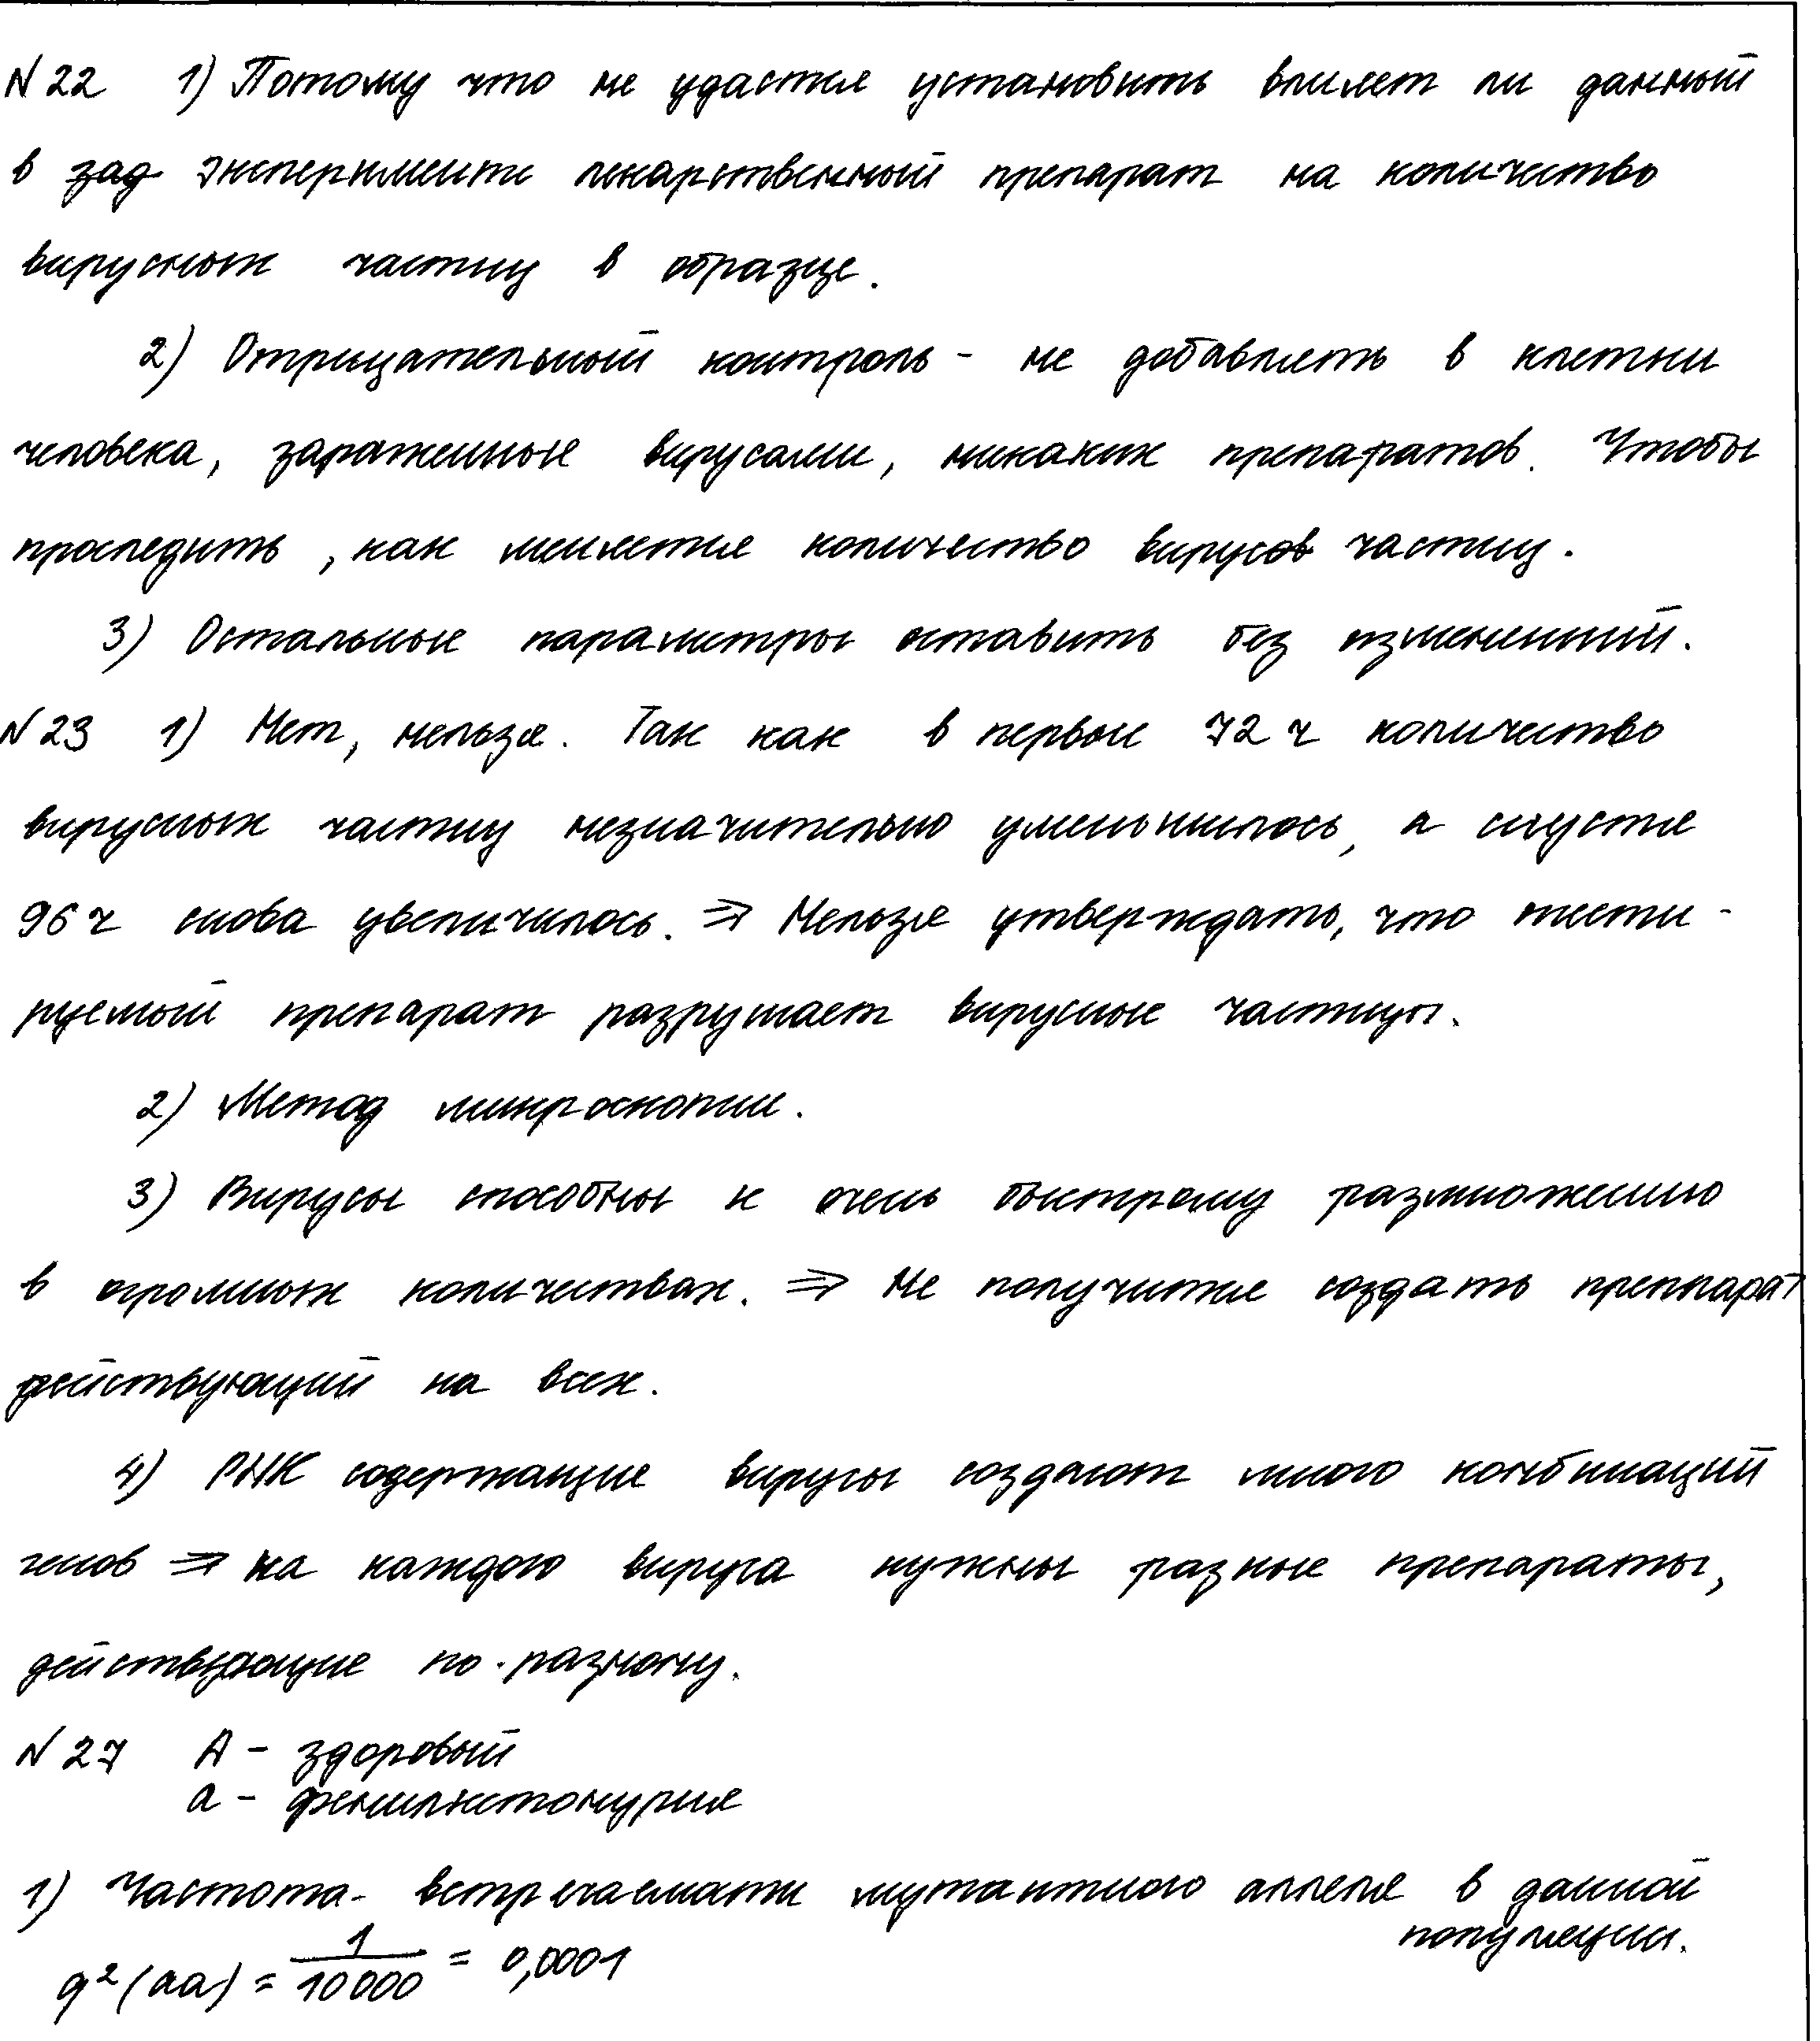 N 22 1) Потому что не удастся установить влияет ли данный
в зад эксперименте лекарственный препарат на количество
вирусных частиц в образце.
2) Отрицательный контроль - не добавлять в клетки
человека, зараженные вирусами, никаких препаратов. Чтобы
проследить, как меняется количество вирусов частиц.
3) Остальные параметры оставить без изменений.
N 23 1) Нет, нельзя. Так как в первые 72 ч количество
вирусных частиц незначительно уменьшилось, а спустя
96 ч снова увеличилось. ⇒ Нельзя утверждать, что тести-
руемый препарат разрушает вирусные частицы.
2) Метод микроскопии.
3) Вирусы способны к очень быстрому размножению
в огромных количествах. ⇒ Не получится создать преппарат
действующий на всех.
4) РНК содержащие вирусы создают много комбинаций
генов ⇒ на каждого вируса нужны разные препараты,
действующие по-разному.
N 27 А - здоровый
а - фенилкетонурия
1) Частота- встречаемати мутантного аллеля в данной
популяции.
q²(aa) = 1/10000 = 0,0001